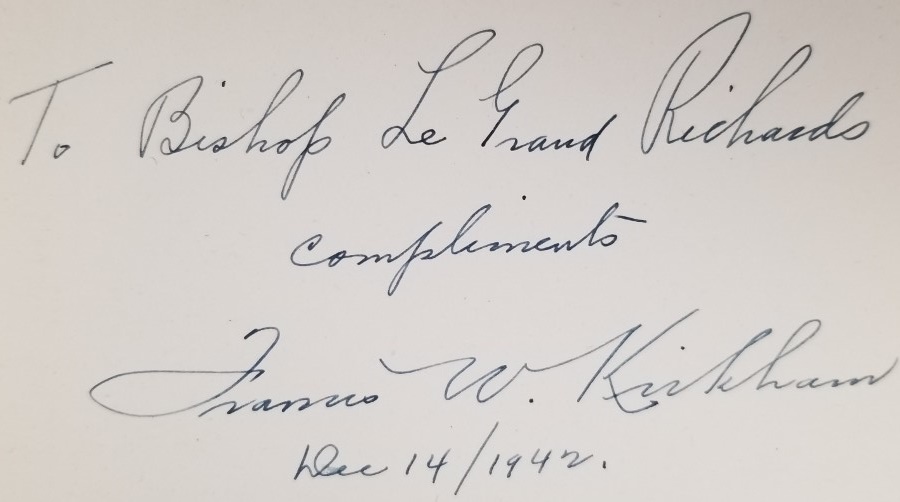 To Bishop Le Grand Richards
compliments
Francis W. Kirkham
Dec 14/1942.